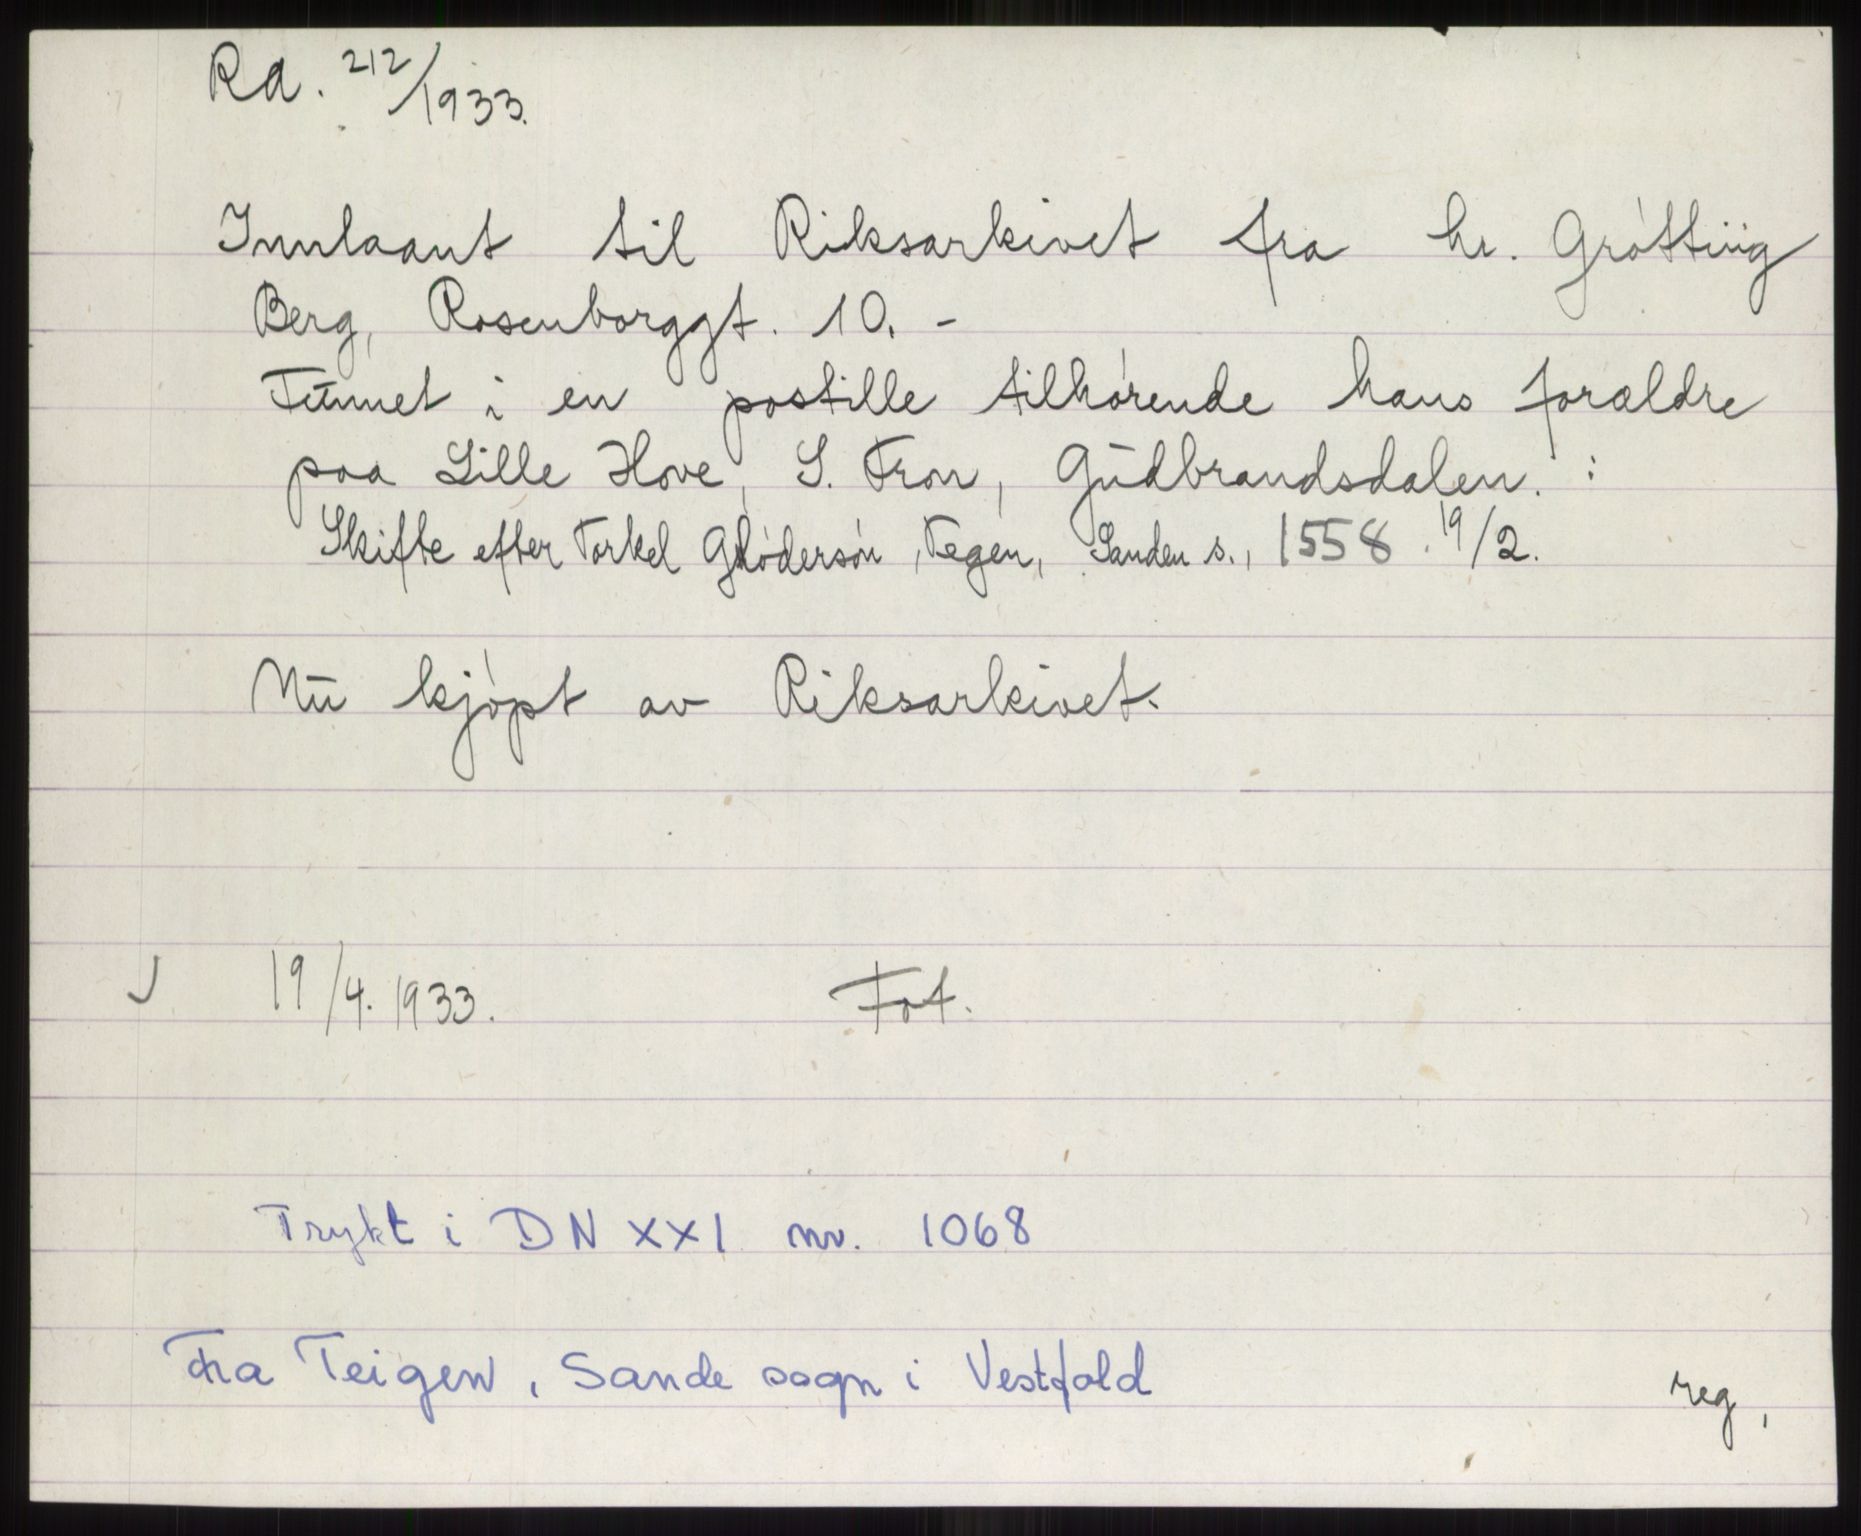 Ra. 212/1933.
Innlaant til Riksarkivet fra hr. Gróttiug
Berg, Rosenborggt. 10. -
Funnet i en postille tilhórende hans foraldre
paa Lille Hove, S. Fron, Gudbrandsdalen. :
Skifte efter Torkel Glódersón, Tegen, Sanden s., 1558. 19/2.
Nu kjópt av Riksarkivet.
19/4. 1933. Fot.
Trykt i DN XXI nr. 1068
Fra Teigen, Sande sogn i Vestfold
reg,